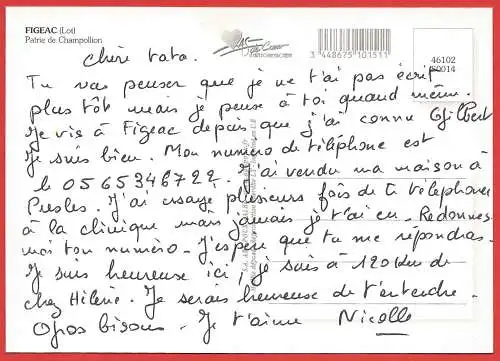 FIGEAC (Lot)
Patrie de Champollion
3 448675 101511
46102
60014
chère tata.
Tu vas penser que je ne t'ai pas écrit
plus tôt mais je pense à toi quand même.
Je vis à Figeac depuis que j'ai connu Gilbert
Je suis bien. Mon numero de téléphone est
le 0565346722. J'ai vendu ma maison à
Presles. J'ai essayé plusieurs fois de te télephoner
à la clinique mais jamais je t'ai eu. Redonnes
moi ton numéro. J'espère que tu me répondras.
Je suis heureuse ici, je suis à 120 km de
chez Hélène. Je serais heureuse de t'entendre.
Gros bisous. Je t'aime Nicolle